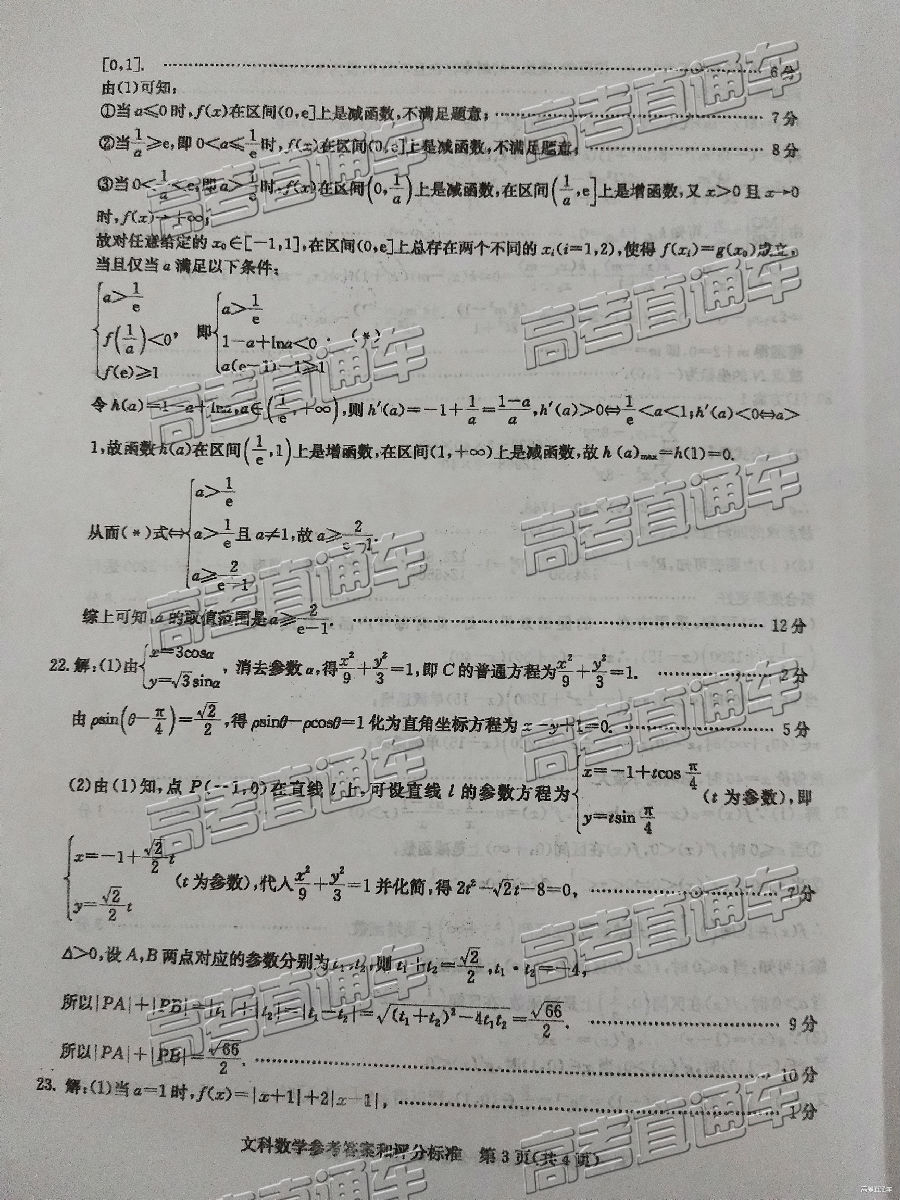 [0,1]. ……………… 6分
由(1)可知:
①当 a≤0时,f(x)在区间(0,e]上是减函数,不满足题意; ……………… 7分
②当1/a≥e,即 0<a≤1/e时,f(x)在区间(0,e]上是减函数,不满足题意; ……………… 8分
③当0<1/a<e,即a>1/e时,f(x)在区间(0,1/a)上是减函数,在区间(1/a,e]上是增函数,又 x>0 且 x→0
时,f(x)→+∞;
故对任意给定的 x₀∈[-1,1],在区间(0,e]上总存在两个不同的 xᵢ(i=1,2),使得 f(xᵢ)=g(x₀)成立,
当且仅当 a 满足以下条件:
{a>1/e, f(1/a)<0, f(e)≥1, 即{a>1/e, 1-a+lna<0, a(e-1)-1≥1. (*)
令 h(a)=1-a+lna,a∈(1/e,+∞),则 h'(a)=-1+1/a=(1-a)/a,h'(a)>0⇔1/e<a<1;h'(a)<0⇔a>
1,故函数 h(a)在区间(1/e,1)上是增函数,在区间(1,+∞)上是减函数,故 h(a)max=h(1)=0.
从而(*)式⇔{a>1/e, a>1/e且 a≠1, a≥2/(e-1) ,故 a≥2/(e-1).
综上可知,a 的取值范围是 a≥2/(e-1). ……………… 12分
22.解:(1)由{x=3cosα, y=√3sinα, 消去参数 α,得x²/9+y²/3=1,即 C 的普通方程为x²/9+y²/3=1. ……………… 2分
由 ρsin(θ-π/4)=√2/2,得 ρsinθ-ρcosθ=1 化为直角坐标方程为 x-y+1=0. ……………… 5分
(2)由(1)知,点 P(-1,0)在直线 l 上,可设直线 l 的参数方程为{x=-1+tcos π/4, y=tsin π/4 (t 为参数),即
{x=-1+√2/2 t, y=√2/2 t (t 为参数),代入x²/9+y²/3=1 并化简,得 2t²-√2t-8=0, ……………… 7分
Δ>0,设 A,B 两点对应的参数分别为 t₁,t₂,则 t₁+t₂=√2/2,t₁·t₂=-4,
所以|PA|+|PB|=|t₁|+|t₂|=|t₁-t₂|=√((t₁+t₂)²-4t₁t₂)=√66/2. ……………… 9分
所以|PA|+|PB|=√66/2. ……………… 10分
23.解:(1)当 a=1 时,f(x)=|x+1|+2|x-1|, ……………… 1分
文科数学参考答案和评分标准 第3页(共4页)
高考直通车